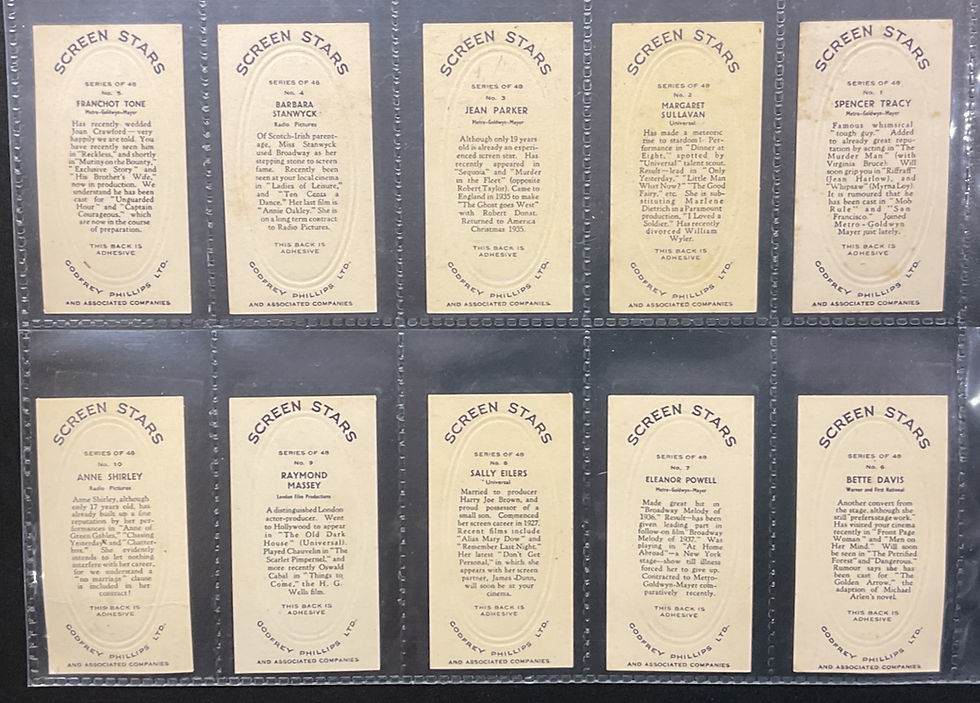 SCREEN STARS
SERIES OF 48
No. 5
FRANCHOT TONE
Metro-Goldwyn-Mayer
Has recently wedded
Joan Crawford — very
happily we are told. You
have recently seen him
in "Reckless," and shortly
in "Mutiny on the Bounty,"
"Exclusive Story" and
"His Brother's Wife,"
now in production. We
understand he has been
cast for "Unguarded
Hour" and "Captain
Courageous," which
are now in the course
of preparation.
THIS BACK IS
ADHESIVE
GODFREY PHILLIPS LTD.
AND ASSOCIATED COMPANIES
SCREEN STARS
SERIES OF 48
No. 4
BARBARA
STANWYCK
Radio Pictures
Of Scotch-Irish parent-
age, Miss Stanwyck
used Broadway as her
stepping stone to screen
fame. Recently been
seen at your local cinema
in "Ladies of Leisure,"
and "Ten Cents a
Dance." Her last film is
"Annie Oakley." She is
on a long term contract
to Radio Pictures.
THIS BACK IS
ADHESIVE
GODFREY PHILLIPS LTD.
AND ASSOCIATED COMPANIES
SCREEN STARS
SERIES OF 48
No. 3
JEAN PARKER
Metro-Goldwyn-Mayer
Although only 19 years
old is already an experi-
enced screen star. Has
recently appeared in
"Sequoia" and "Murder
in the Fleet" (opposite
Robert Taylor). Came to
England in 1935 to make
"The Ghost goes West"
with Robert Donat.
Returned to America
Christmas 1935.
THIS BACK IS
ADHESIVE
GODFREY PHILLIPS LTD.
AND ASSOCIATED COMPANIES
SCREEN STARS
SERIES OF 48
No. 2
MARGARET
SULLAVAN
Universal
Has made a meteoric
rise to stardom! Per-
formance in "Dinner at
Eight," spotted by
"Universal" talent scout.
Result—lead in "Only
Yesterday," "Little Man
What Now?" "The Good
Fairy," etc. She is sub-
stituting Marlene
Dietrich in a Paramount
production, "I Loved a
Soldier." Has recently
divorced William
Wyler.
THIS BACK IS
ADHESIVE
GODFREY PHILLIPS LTD.
AND ASSOCIATED COMPANIES
SCREEN STARS
SERIES OF 48
No. 1
SPENCER TRACY
Metro-Goldwyn-Mayer
Famous whimsical
"tough guy." Added
to already great repu-
tation by acting in "The
Murder Man" (with
Virginia Bruce). Will
soon grip you in "Riffraff"
(Jean Harlow), and
"Whipsaw" (Myrna Loy).
It is rumoured that he
has been cast in "Mob
Rule" and "San
Francisco." Joined
Metro-Goldwyn
Mayer just lately.
THIS BACK IS
ADHESIVE
GODFREY PHILLIPS LTD.
AND ASSOCIATED COMPANIES
SCREEN STARS
SERIES OF 48
No. 10
ANNE SHIRLEY
Radio Pictures
Anne Shirley, although
only 17 years old, has
already built up a fine
reputation by her per-
formances in "Anne of
Green Gables," "Chasing
Yesterday" and "Chatter-
box." She evidently
intends to let nothing
interfere with her career,
for we understand a
"no marriage" clause
is included in her
contract!
THIS BACK IS
ADHESIVE
GODFREY PHILLIPS LTD.
AND ASSOCIATED COMPANIES
SCREEN STARS
SERIES OF 48
No. 9
RAYMOND
MASSEY
London Film Productions
A distinguished London
actor-producer. Went
to Hollywood to appear
in "The Old Dark
House" (Universal).
Played Chauvelin in "The
Scarlet Pimpernel," and
more recently Oswald
Cabal in "Things to
Come," the H. G.
Wells film.
THIS BACK IS
ADHESIVE
GODFREY PHILLIPS LTD.
AND ASSOCIATED COMPANIES
SCREEN STARS
SERIES OF 48
No. 8
SALLY EILERS
Universal
Married to producer
Harry Joe Brown, and
proud possessor of a
small son. Commenced
her screen career in 1927.
Recent films include
"Alias Mary Dow" and
"Remember Last Night."
Her latest "Don't Get
Personal," in which she
appears with her screen
partner, James Dunn,
will soon be at your
cinema.
THIS BACK IS
ADHESIVE
GODFREY PHILLIPS LTD.
AND ASSOCIATED COMPANIES
SCREEN STARS
SERIES OF 48
No. 7
ELEANOR POWELL
Metro-Goldwyn-Mayer
Made great hit in
"Broadway Melody of
1936." Result—has been
given leading part in
follow-on film "Broadway
Melody of 1937." Was
playing in "At Home
Abroad"—a New York
stage—show till illness
forced her to give up.
Contracted to Metro-
Goldwyn-Mayer com-
paratively recently.
THIS BACK IS
ADHESIVE
GODFREY PHILLIPS LTD.
AND ASSOCIATED COMPANIES
SCREEN STARS
SERIES OF 48
No. 6
BETTE DAVIS
Warner and First National
Another convert from
the stage, although she
still prefers stage work.
Has visited your cinema
recently in "Front Page
Woman" and "Men on
Her Mind." Will soon
be seen in "The Petrified
Forest" and "Dangerous."
Rumour says she has
been cast for "The
Golden Arrow," the
adaption of Michael
Arlen's novel.
THIS BACK IS
ADHESIVE
GODFREY PHILLIPS LTD.
AND ASSOCIATED COMPANIES